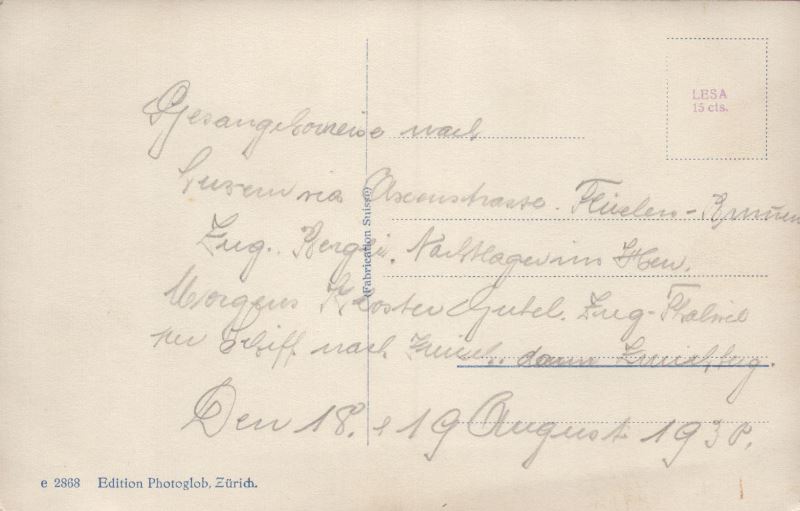 LESA
15 cts.
nach
Luzern via Axenstrasse. Flüelen - Brunnen
Zug. Nachtlager im Heu.
Morgens Kloster Gubel. Zug - Thalwil
per Schiff nach Zürich. dann
Den 18. & 19 August 1930.
(Fabrication Suisse)
e 2868 Edition Photoglob, Zürich.